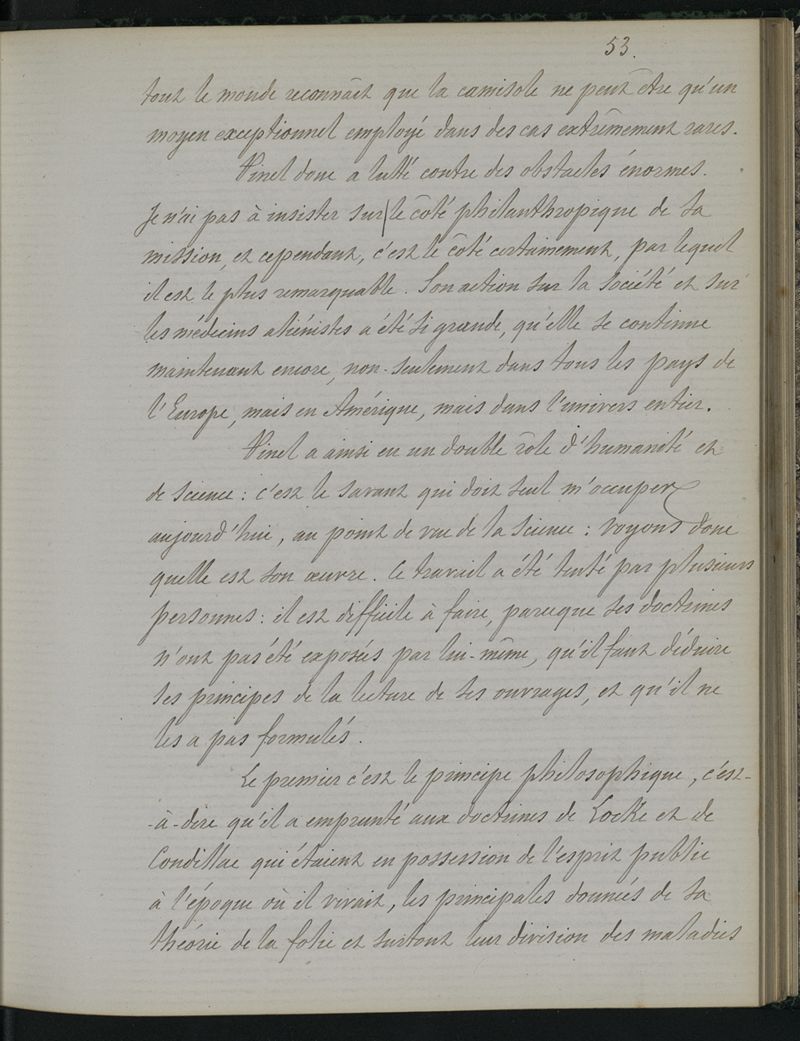 53.
tout le monde reconnait que la camisole ne peut être qu'un
moyen exceptionnel employé dans des cas extrêmement rares.
Pinel donc a lutté contre des obstacles énormes.
Je n'ai pas à insister sur le côté philanthropique de sa
mission, et cependant, c'est le côté certainement, par lequel
il est le plus remarquable. Son action sur la Société et sur
les médecins aliénistes a été si grande, qu'elle se continue
maintenant encore, non-seulement dans tous les pays de
l'Europe, mais en Amérique, mais dans l'univers entier.
Pinel a ainsi eu un double rôle d'humanité et
de science : c'est le savant qui doit seul m'occuper
aujourd'hui, au point de vue de la Science : voyons donc
quelle est son œuvre. Ce travail a été tenté par plusieurs
personnes : il est difficile à faire, parceque ses doctrines
n'ont pas été exposées par lui-même, qu'il faut déduire
ses principes de la lecture de ses ouvrages, et qu'il ne
les a pas formulés.
Le premier c'est le principe philosophique, c'est-
-à-dire qu'il a emprunté aux doctrines de Locke et de
Condillac qui étaient en possession de l'esprit public
à l'époque où il vivait, les principales données de sa
théorie de la folie et surtout leur division des maladies